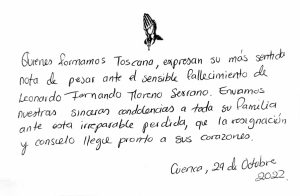 Quienes formamos Toscana, expresan su más sentida
nota de pesar ante el sensible fallecimiento de
Leonardo Fernando Moreno Serrano. Enviamos
nuestras sinceras condolencias a toda su familia
ante esta irreparable perdida, que la resignación
y consuelo llegue pronto a sus corazones.
Cuenca, 29 de Octubre
2022.